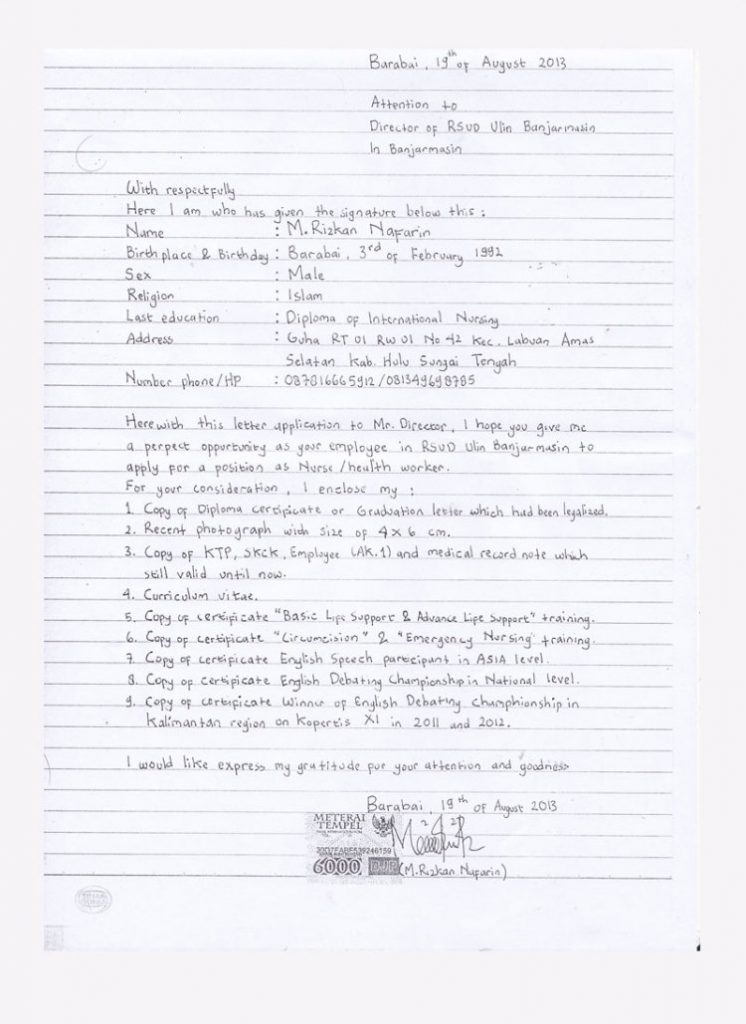 Barabai, 19th of August 2013
Attention to
Director of RSUD Ulin Banjarmasin
In Banjarmasin
With respectfully
Here I am who has given the signature below this :
Name : M. Rizkan Nafarin
Birth place & Birthday : Barabai, 3rd of February 1992
Sex : Male
Religion : Islam
Last education : Diploma of International Nursing
Address : Guha RT 01 RW 01 No 42 Kec. Labuan Amas
Selatan Kab. Hulu Sungai Tengah
Number phone/HP : 087816665912/081349698785
Herewith this letter application to Mr. Director, I hope you give me
a perpect opportunity as your employee in RSUD Ulin Banjarmasin to
apply for a position as Nurse/health worker.
For your consideration, I enclose my :
1. Copy of Diploma certificate or Graduation letter which had been legalized.
2. Recent photograph with size of 4x6 cm.
3. Copy of KTP, SKCK, Employee (AK.1) and medical record note which
still valid until now.
4. Curriculum vitae.
5. Copy of certificate "Basic Life Support & Advance Life Support" training.
6. Copy of certificate "Circumcision" & "Emergency Nursing" training.
7. Copy of certificate English Speech participant in ASIA level.
8. Copy of certificate English Debating Championship in National level.
9. Copy of certificate Winner of English Debating Champhionship in
Kalimantan region on Kopertis XI in 2011 and 2012.
I would like express my gratitude for your attention and goodness
Barabai, 19th of August 2013
METERAI
TEMPEL
6000 DJP
(M. Rizkan Nafarin)